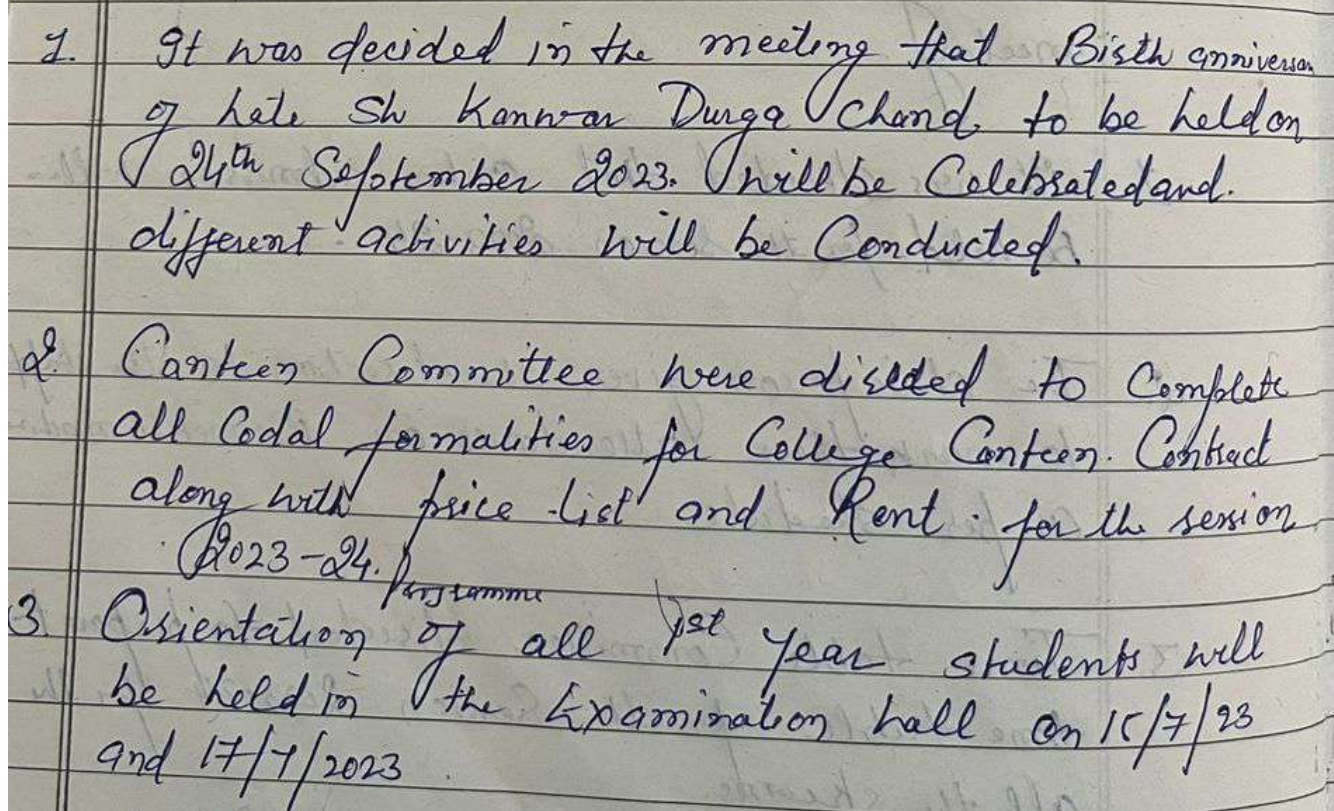 1. It was decided in the meeting that Birth anniversar
of Late Sh Kanwar Durga Chand, to be held on
24th September 2023. will be Celebrated and.
different activities will be Conducted.
2. Canteen Committee were directed to Complete
all Codal formalities for College Canteen. Contract
along with price-list and Rent. for the session
2023-24.
Programme
3. Orientation of all 1st Year students will
be held in the Examination hall on 15/7/23
and 17/7/2023.